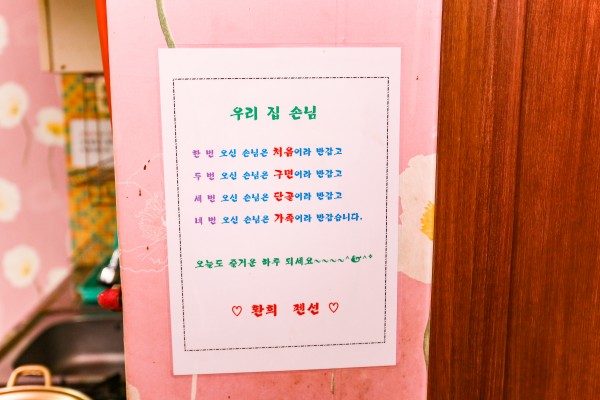 우리 집 손님
한 번 오신 손님은 처음이라 반갑고
두 번 오신 손님은 구면이라 반갑고
세 번 오신 손님은 단골이라 반갑고
네 번 오신 손님은 가족이라 반갑습니다.
오늘도 즐거운 하루 되세요~~~~^^
♡ 환희 펜션 ♡